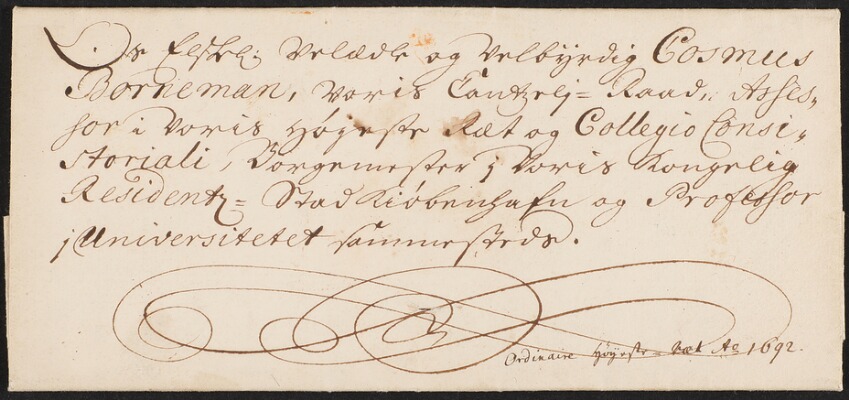 Os Elskel: Velædle og Velbyrdig Cosmus
Borneman, Voris Cantzelj= Raad, Asses=
sor i Voris Høyeste Ræt og Collegio Consi=
storiali, Borgemester j Voris Kongelig
Residentz= Stad Kiøbenhafn og Professor
j Universitetet sammesteds.
Ordinaire Høyeste-Ræt Ao 1692.